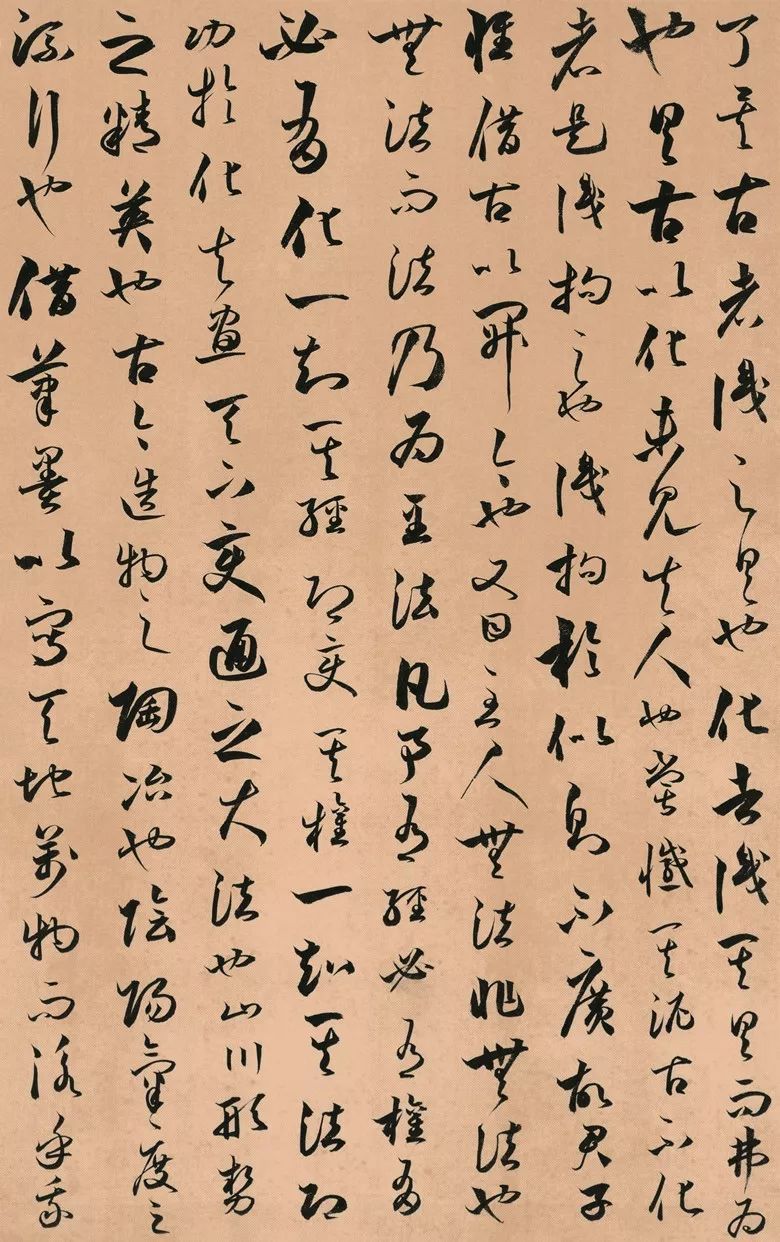 了矣古者識之具也化者識其具而弗為
也具古以化未見夫人也嘗憾其泥古不化
者是識拘之也識拘於似則不廣故君子
惟借古以開今也又曰至人無法非無法也
無法而法乃為至法凡事有經必有權有
必有化一知其經即變其權一知其法即
功於化夫畫天下變通之大法也山川形勢
之精英也古今造物之陶冶也陰陽氣度之
流行也借筆墨以寫天地萬物而泳乎我